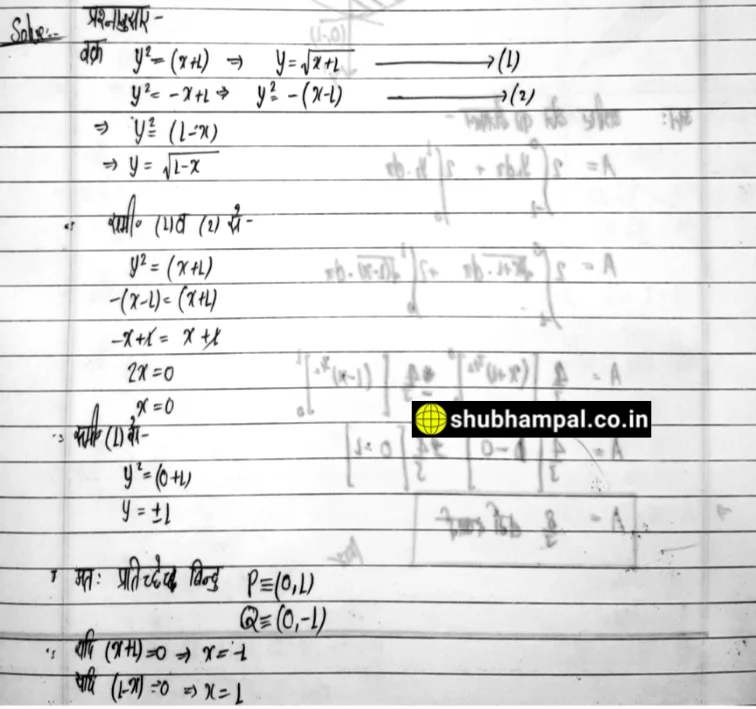 Solve:- प्रश्नानुसार -
वक्र y² = (x+1) ⇒ y = √x+1 ⟶ (1)
y² = -x+1 ⇒ y² = -(x-1) ⟶ (2)
⇒ y² = (1-x)
⇒ y = √1-x
∴ समी० (1) व (2) से -
y² = (x+1)
-(x-1) = (x+1)
-x+1 = x+1
2x = 0
x = 0
∴ समी० (1) से -
y² = (0+1)
y = ±1
अतः प्रतिच्छेद बिन्दु P≡(0,1)
Q≡(0,-1)
∴ यदि (x+1)=0 ⇒ x = -1
यदि (1-x)=0 ⇒ x = 1
shubhampal.co.in